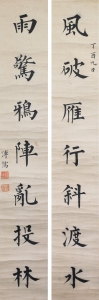 風破雁行斜渡水
丁酉九月
雨驚鴉陣亂投林
溥儒